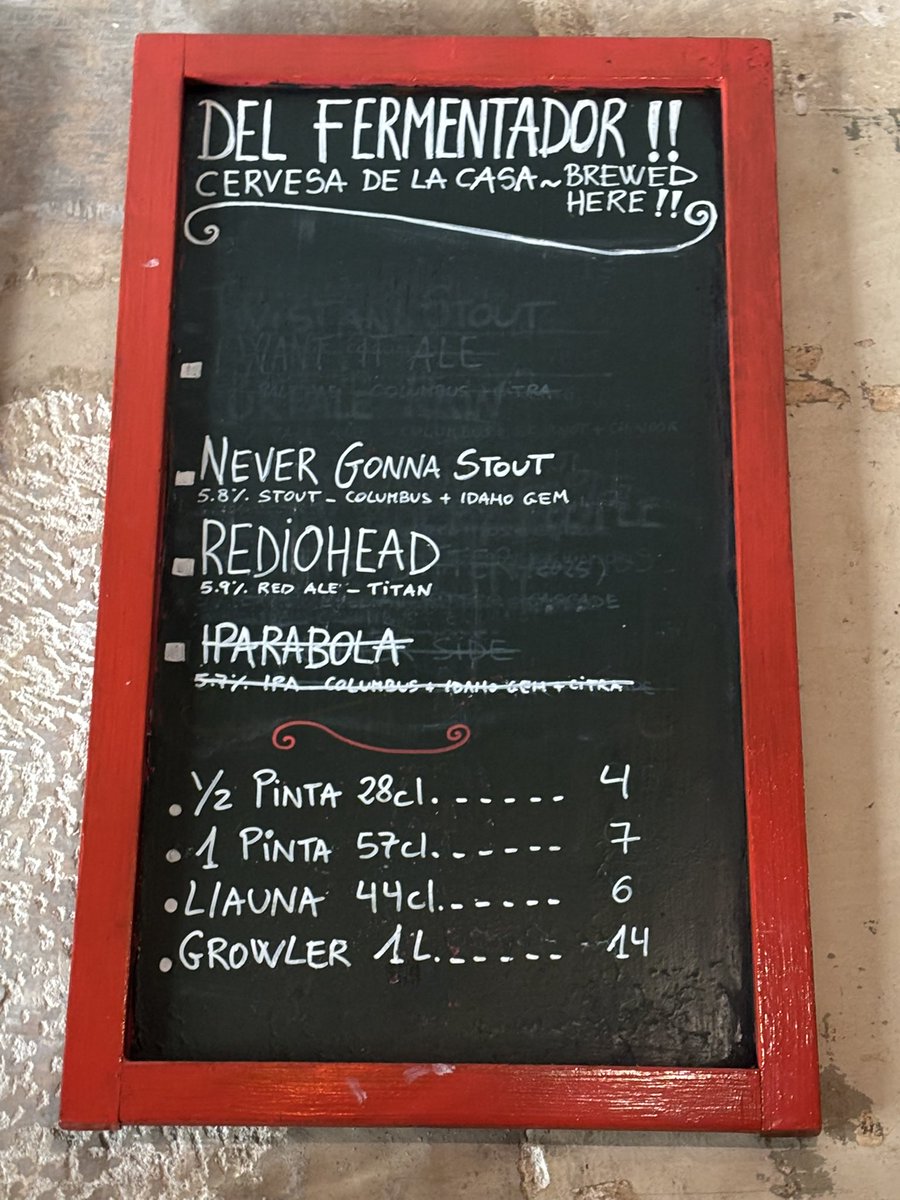 DEL FERMENTADOR !!
CERVESA DE LA CASA ~ BREWED
HERE !!
STOUT
WANT IT ALE
COLUMBUS + CITRA
NEVER GONNA STOUT
5.8% STOUT - COLUMBUS + IDAHO GEM
REDIOHEAD
5.9% RED ALE - TITAN
IPARABOLA
SIDE
5.7% IPA COLUMBUS + IDAHO GEM + CITRA
1/2 PINTA 28cl. - - - - - - 4
1 PINTA 57cl. - - - - - - 7
LlAUNA 44cl. - - - - - - 6
GROWLER 1L. - - - - - - 14